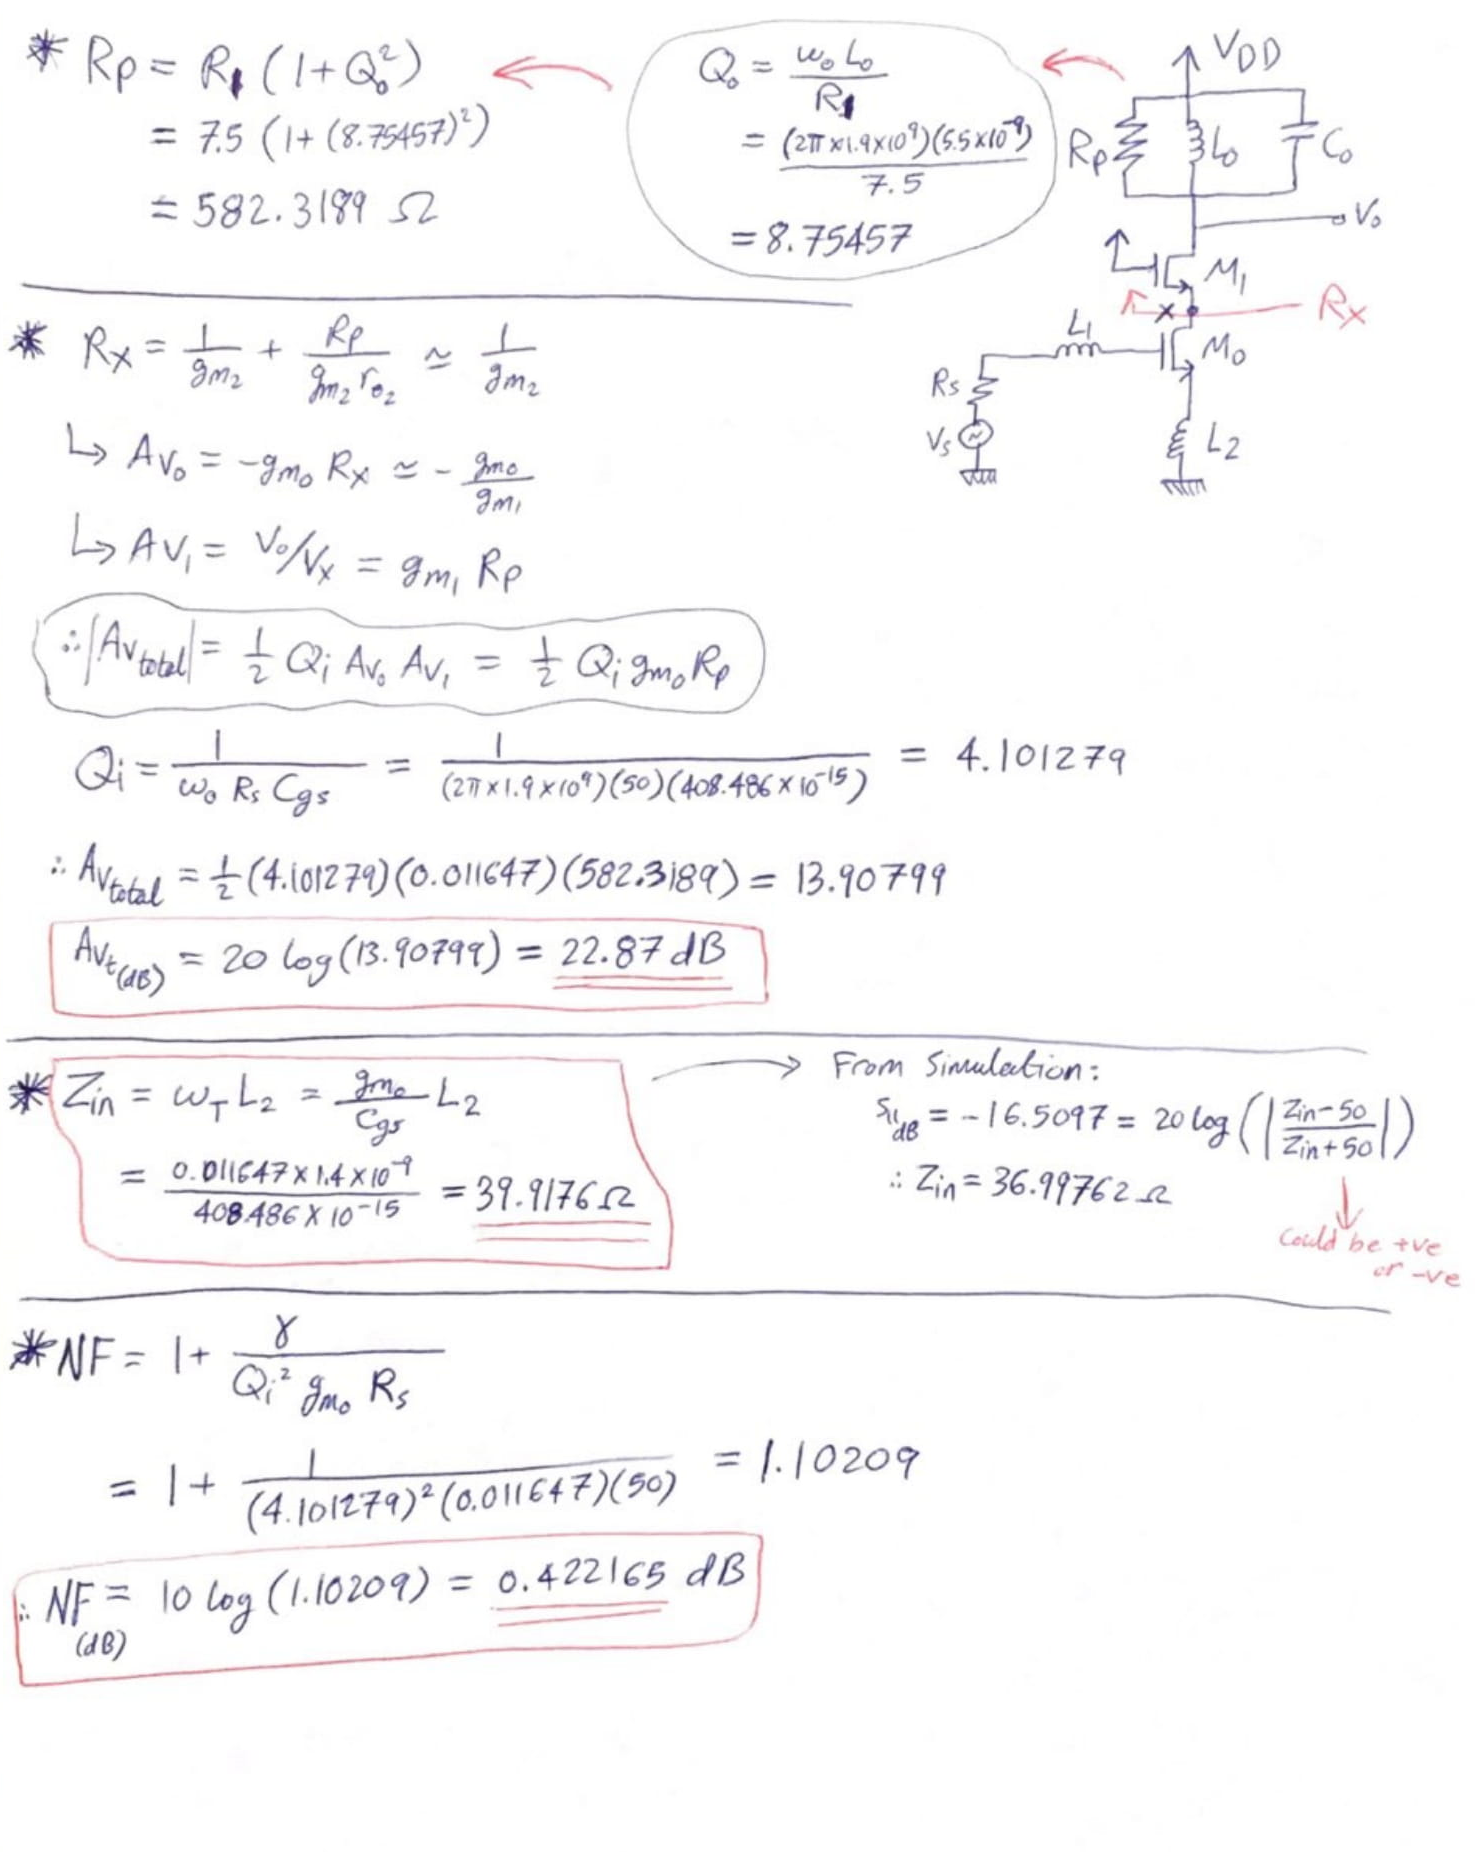 * Rp = R1 (1+Q₀²)
= 7.5 (1+ (8.75457)²)
= 582.3189 Ω
Q₀ = ω₀L₀ / R1
= (2π×1.9×10⁹)(5.5×10⁻⁹) / 7.5
= 8.75457
VDD
Rp L₀ C₀
V₀
M₁
x Rx
L₁
M₀
Rs
Vs
L2
* Rx = 1/gm₂ + Rp/(gm₂ r₀₂) ≃ 1/gm₂
↳ Av₀ = -gm₀ Rx ≃ - gm₀/gm₁
↳ Av₁ = V₀/Vx = gm₁ Rp
∴ |Av total| = 1/2 Qi Av₀ Av₁ = 1/2 Qi gm₀ Rp
Qi = 1/(ω₀ Rs Cgs) = 1/((2π×1.9×10⁹)(50)(408.486×10⁻¹⁵)) = 4.101279
∴ Av total = 1/2 (4.101279)(0.011647)(582.3189) = 13.90799
Avt(dB) = 20 log(13.90799) = 22.87 dB
* Zin = ωT L2 = gm₀/Cgs L2
= 0.011647×1.4×10⁻⁹ / 408.486×10⁻¹⁵ = 39.9176 Ω
From Simulation:
S₁₁dB = -16.5097 = 20 log(|Zin-50 / Zin+50|)
∴ Zin = 36.99762 Ω
Could be +ve
or -ve
* NF = 1+ γ/(Qi² gm₀ Rs)
= 1+ 1/((4.101279)²(0.011647)(50)) = 1.10209
∴ NF(dB) = 10 log(1.10209) = 0.422165 dB